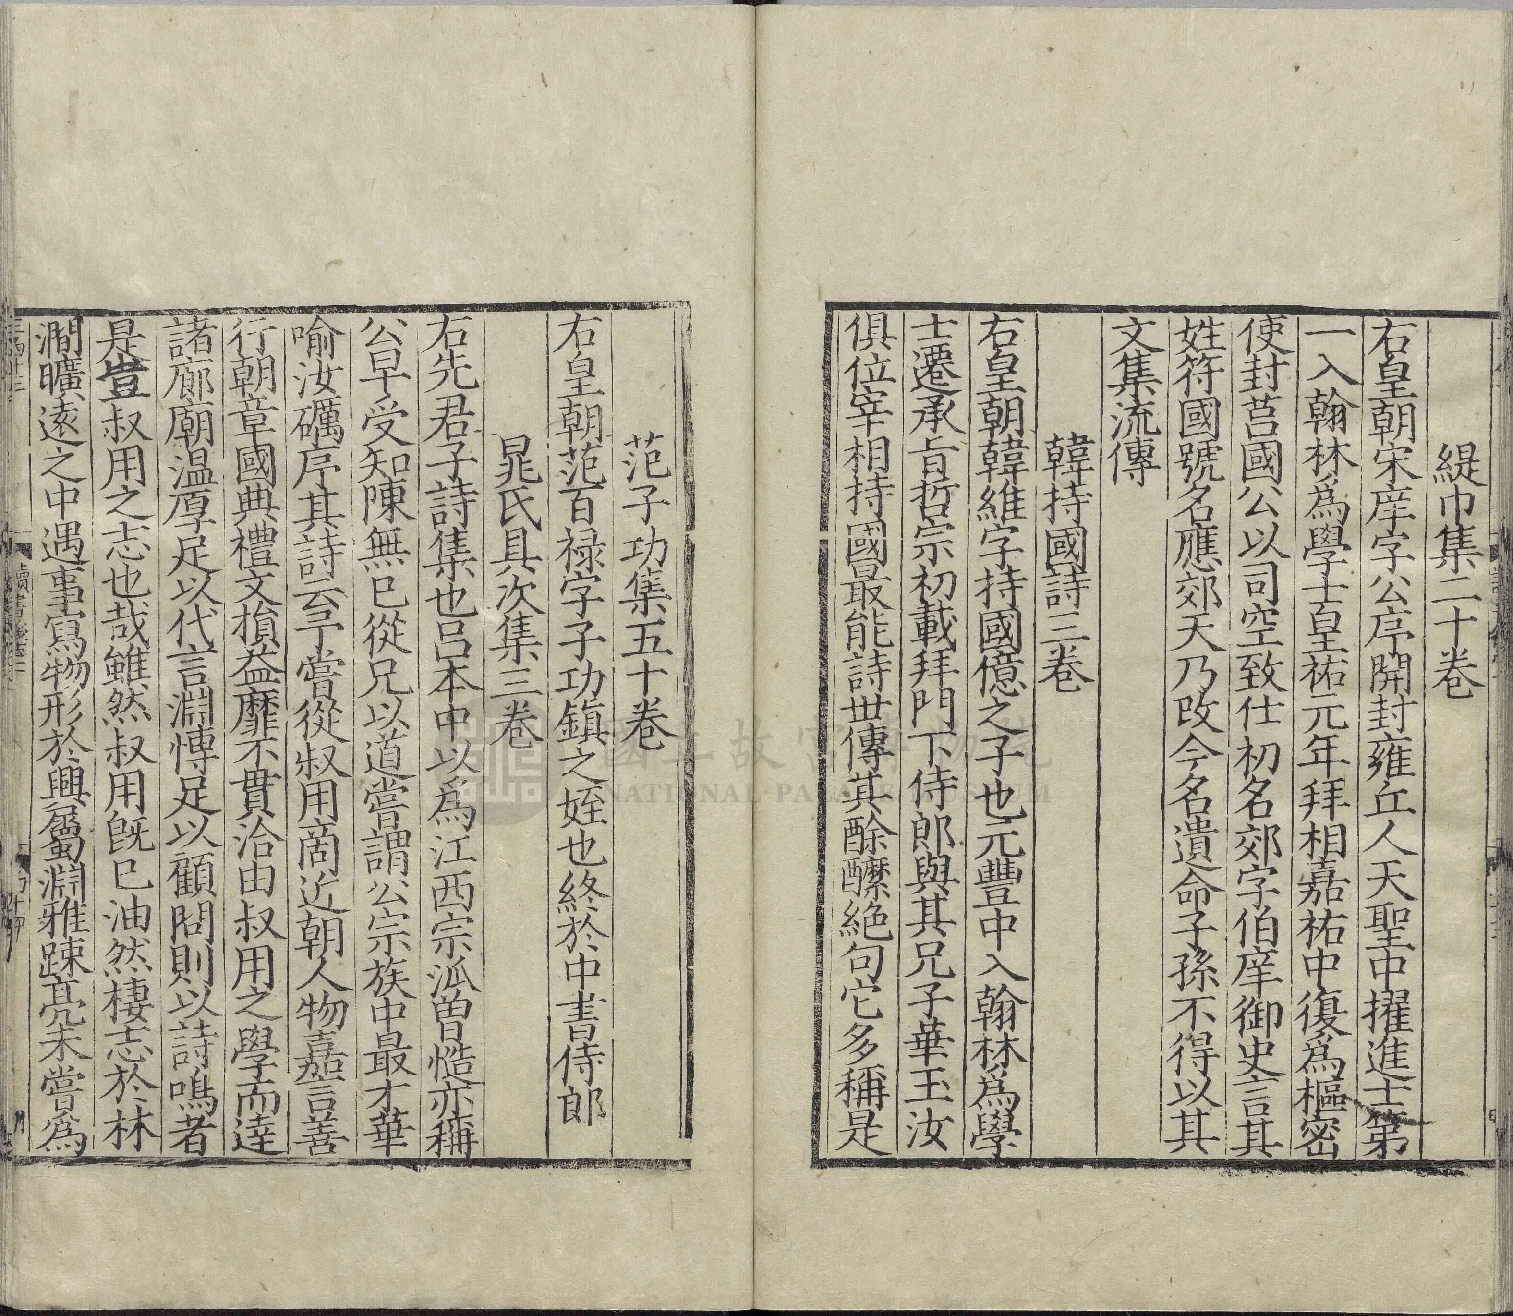 緹巾集二十卷
右皇朝宋庠字公序開封雍丘人天聖中擢進士第
一入翰林爲學士皇祐元年拜相嘉祐中復爲樞密
使封莒國公以司空致仕初名郊字伯庠御史言其
姓符國號名應郊天乃改今名遺命子孫不得以其
文集流傳
韓持國詩三卷
右皇朝韓維字持國億之子也元豐中入翰林爲學
士遷承旨哲宗初載拜門下侍郎與其兄子華玉汝
俱位宰相持國最能詩世傳其酴醿絶句它多稱是
范子功集五十卷
右皇朝范百禄字子功鎮之姪也終於中書侍郎
晁氏具次集三卷
右先君子詩集也吕本中以爲江西宗派曾慥亦稱
公早受知陳無已從兄以道嘗謂公宗族中最才華
喻汝礪序其詩云予嘗從叔用啇近朝人物嘉言善
行朝章國典禮文損益靡不貫洽由叔用之學而逹
諸廊廟温厚足以代言淵愽足以顧問則以詩鳴者
是豈叔用之志也哉雖然叔用既已油然棲志於林
澗曠逺之中遇事寫物形於興屬淵雅踈亮未嘗爲
國立故宮博物院
NATIONAL PALACE MUSEUM